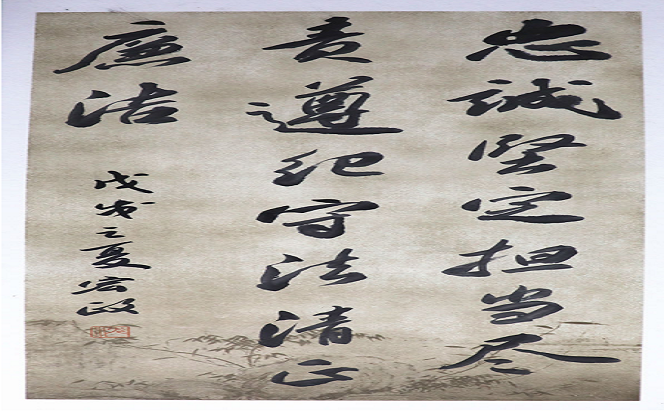 忠诚坚定担当尽
责遵纪守法清正
廉洁
戊戌之夏宏政